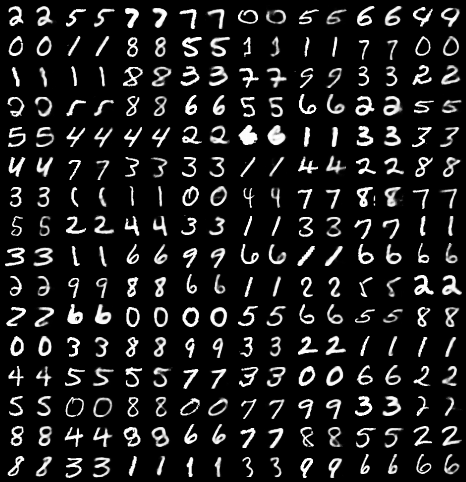 2 2 5 5 7 7 7 7 0 0 5 5 6 6 9 9
0 0 1 1 8 8 5 5 1 1 1 1 7 7 0 0
1 1 1 1 8 8 3 3 7 7 9 9 3 3 2 2
2 2 5 5 8 8 6 6 5 5 6 6 2 2 5 5
5 5 4 4 4 4 2 2 6 6 1 1 3 3 3 3
4 4 7 7 3 3 3 3 1 1 4 4 2 2 8 8
3 3 1 1 1 1 0 0 4 4 7 7 8 8 7 7
5 5 2 2 4 4 3 3 1 1 3 3 7 7 1 1
3 3 1 1 6 6 9 9 6 6 1 1 6 6 6 6
2 2 9 9 8 8 6 6 1 1 2 2 5 5 2 2
2 2 6 6 0 0 0 0 5 5 6 6 5 5 8 8
0 0 3 3 8 8 9 9 3 3 2 2 1 1 1 1
4 4 5 5 5 5 7 7 3 3 0 0 6 6 2 2
5 5 0 0 8 8 0 0 7 7 9 9 3 3 7 7
8 8 4 4 8 8 6 6 7 7 8 8 5 5 2 2
8 8 3 3 1 1 1 1 3 3 9 9 6 6 6 6